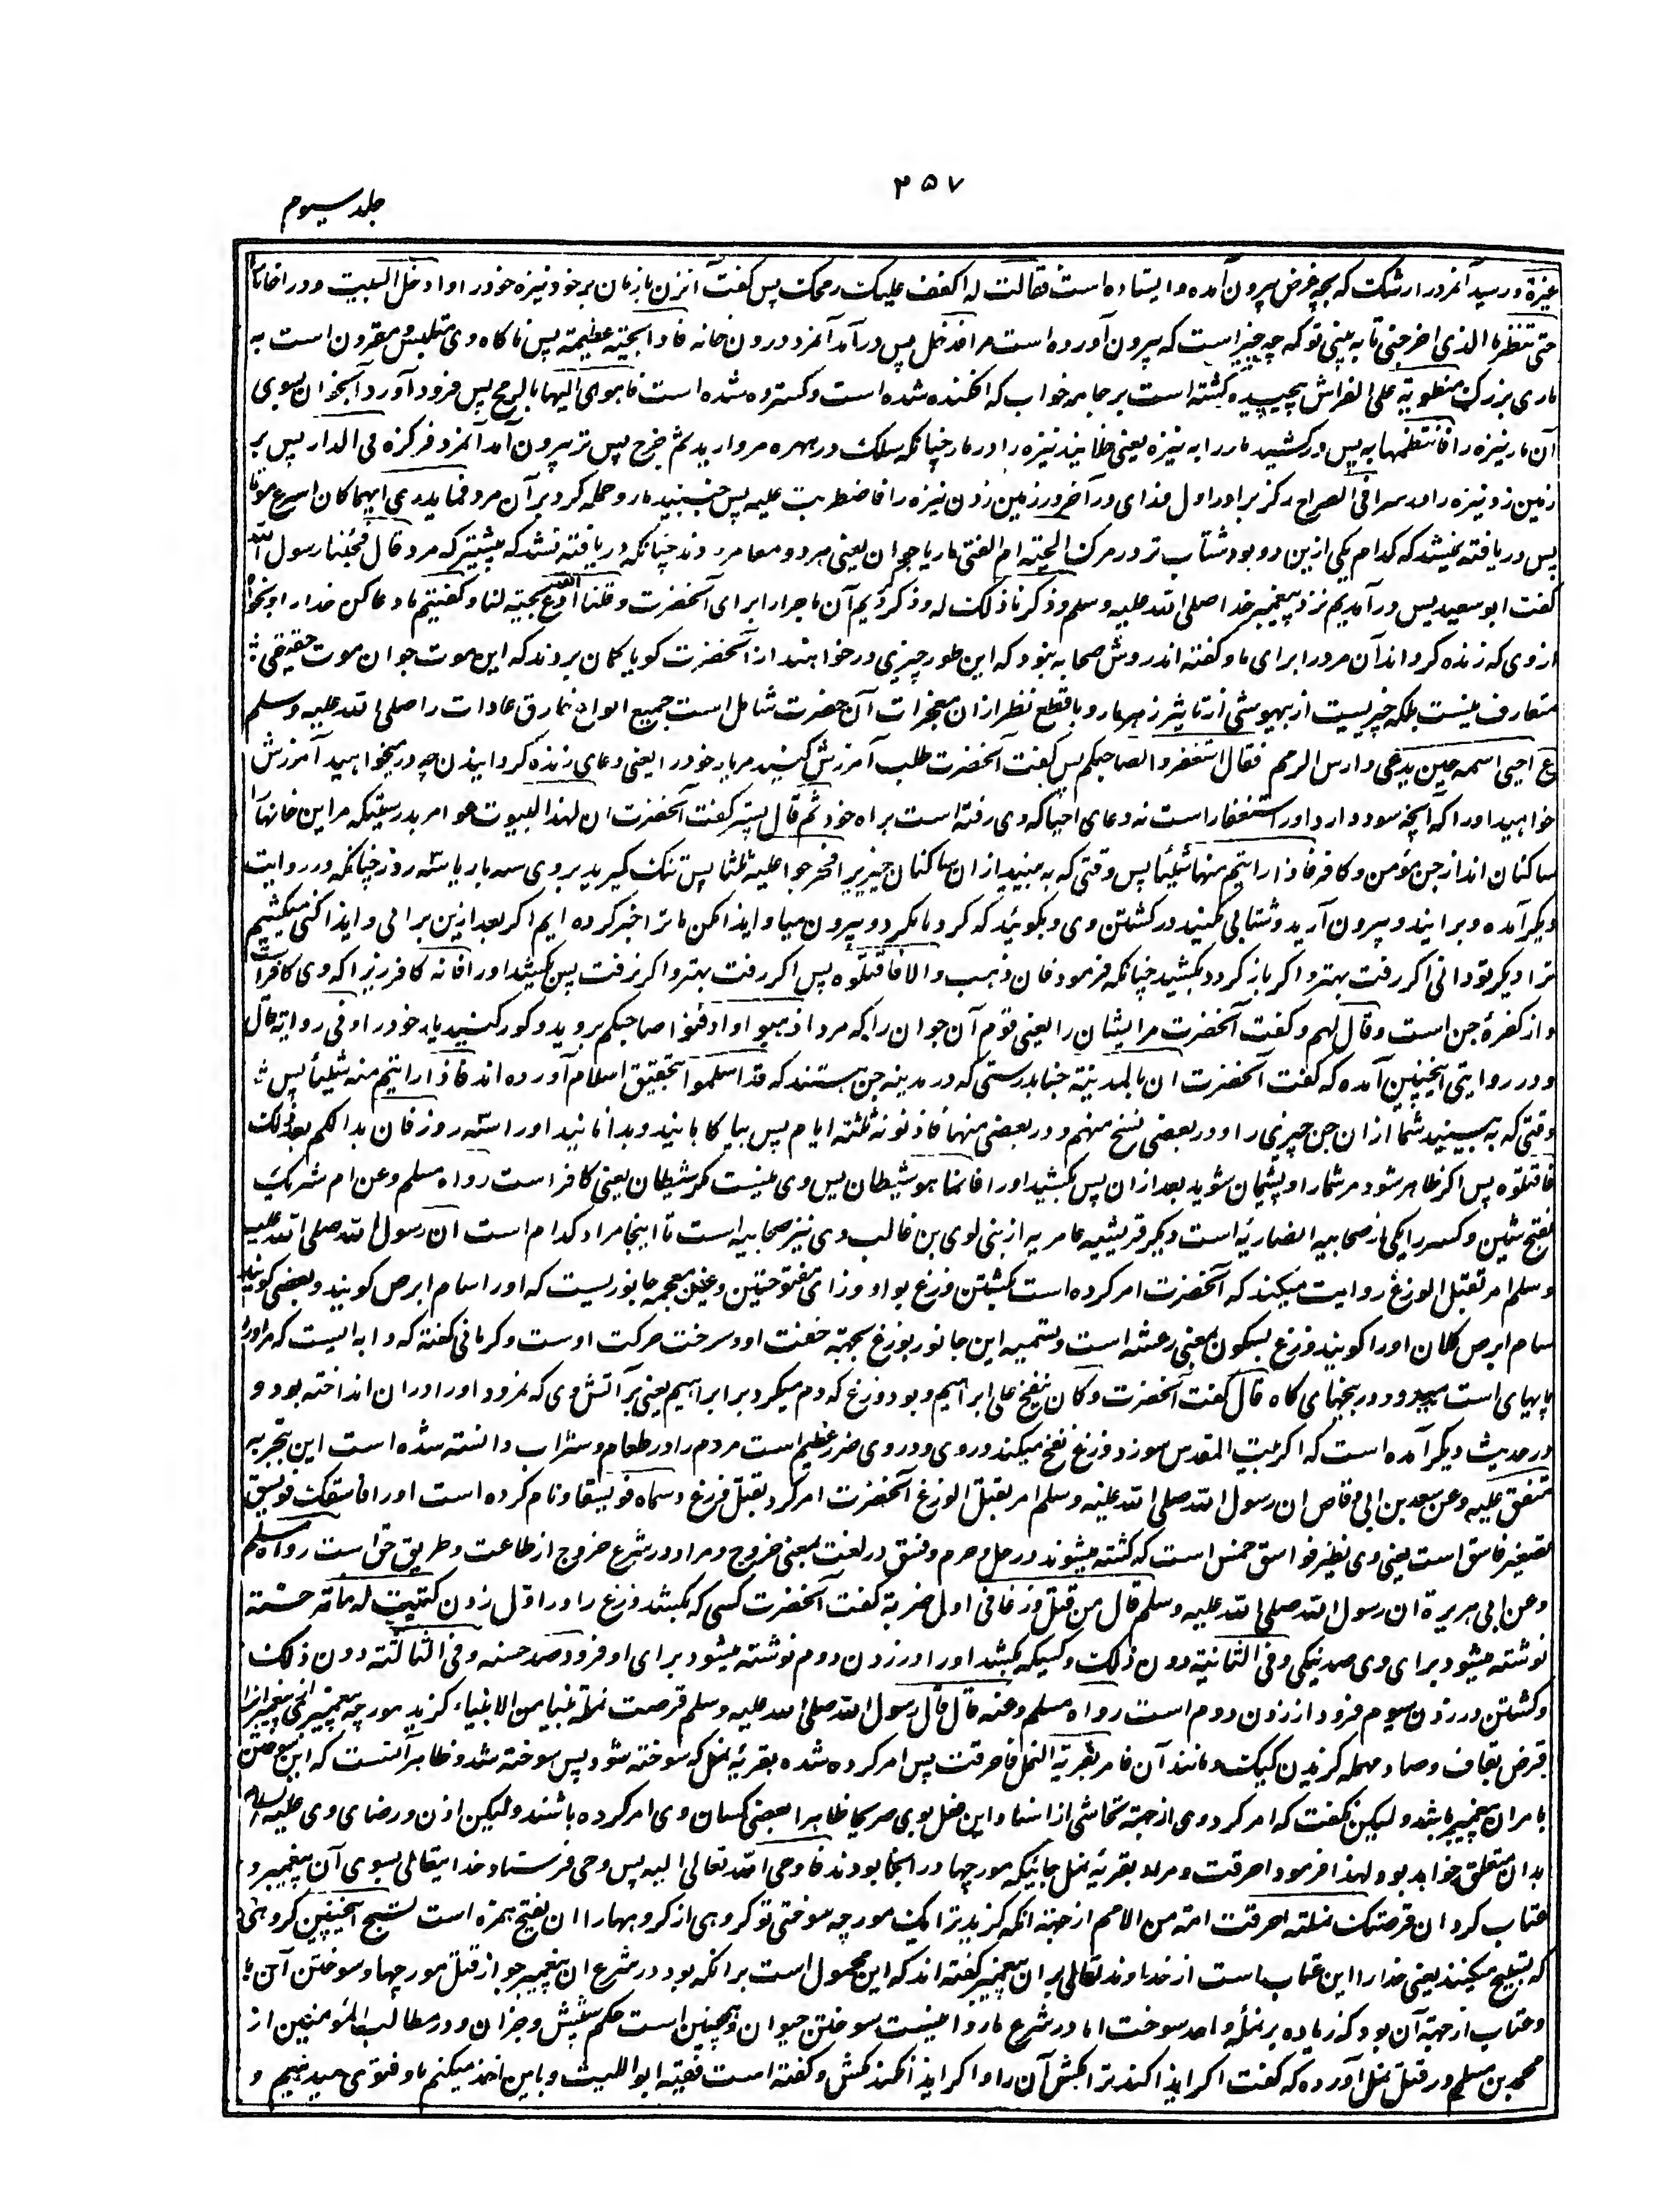 ۴۵۷
جلد سیوم
غیرة و رسید آنمرد را رشک که بچه غرض بیرون آمده و ایستاده است فقالت له اکفف علیک رمحک پس گفت آنزن بازمان بر خود نیزه خود را و ادخل البیت و درا خانه را
حتی تنظر ما الذی اخرجنی تا به بینی تو که چه چیز است که بیرون آورده است مرا فدخل پس درآمد آنمرد درون خانه فاذا بحیة عظیمة پس ناگاه وی متلبس و مقرون است به
ماری بزرگ منطویة علی الفراش پیچیده گشته است بر جامه خواب که افکنده شده است و گسترده شده است فاهوی الیها بالرمح پس فرود آورد آنجوان بسوی
آن مار نیزه را فانتظمها به پس درکشید مار را به نیزه یعنی خلانید نیزه را در مار چنانکه سلک در مهره مروارید ثم خرج پس تر بیرون آمد آنمرد فرکزه فی الدار پس بر
زمین زد نیزه را در سرا فی الصراح رکز براء اول و زای در آخر در زمین زدن نیزه را فاضطربت علیه پس جنبید مار و حمله کرد بر آن مرد فما یدری ایهما کان اسرع موتا
پس دریافته نمیشد که کدام یکی ازین دو بود شتاب تر در مرگ الحیة ام الفتی مار یا جوان یعنی هر دو معا مردند چنانکه دریافته نشد که پیشتر که مرد قال فجئنا رسول الله
گفت ابو سعید پس درآمدیم نزد پیغمبر خدا صلی الله علیه وسلم و ذکرنا ذلک له و ذکر کردیم آن ماجرا را برای آنحضرت و قلنا ادع الله یحییه لنا و گفتیم ما دعا کن خدا را و بخواه
از وی که زنده گرداند آن مرد را برای ما و گفته اند روش صحابه نبود که این طور چیزی درخواهند از آنحضرت گویا گمان بردند که این موت جوان موت حقیقی
متعارف نیست بلکه چیزیست از بیهوشی از تاثیر زهر مار و با قطع نظر ازان معجزات آن حضرت شامل است جمیع انواع خارق عادات را صلی الله علیه وسلم
ع احیی اسمه حین یدعی دارس الرمم فقال استغفروا لصاحبکم پس گفت آنحضرت طلب آمرزش کنید مر یار خود را یعنی دعای زنده گردانیدن چه در میخواهید آمرزش
خواهید او را که آنچه سود دارد او را استغفار است نه دعای احیا که وی رفته است براه خود ثم قال پستر گفت آنحضرت ان لهذه البیوت عوامر بدرستیکه مر این خانها را
ساکنان اند از جن مؤمن و کافر فاذا رایتم منها شیئا پس وقتی که به بینید از ان ساکنان چیزیرا فحرجوا علیه ثلثا پس تنگ گیرید بر وی سه بار یا سه روز چنانکه در روایت
دیگر آمده و برانید و بیرون آرید و شتابی مکنید در کشتن وی و بگوئید که گرد ما مگرد و بیرون میا و ایذا مکن ما ترا خبر کرده ایم اگر بعد ازین برائی و ایذا کنی میکشیم
ترا دیگر تو دانی اگر رفت بهتر و اگر باز گردد بکشید چنانکه فرمود فان ذهب و الا فاقتلوه پس اگر رفت بهتر و اگر نرفت پس بکشید او را فانه کافر زیرا که وی کافر است
و از کفرهٔ جن است و قال لهم و گفت آنحضرت مر ایشان را یعنی قوم آن جوان را که مرد اذهبوا و ادفنوا صاحبکم بروید و گور کنید یار خود را و فی روایة قال
و در روایتی اینچنین آمده که گفت آنحضرت ان بالمدینة جنا بدرستی که در مدینه جن هستند که قد اسلموا بتحقیق اسلام آورده اند فاذا رایتم منه شیئا پس
وقتی که به بینید شما ازان جن چیزی را و در بعضی نسخ منهم و در بعضی منها فاذنوه ثلثة ایام پس بیاگاهانید و بدانانید او را سه روز فان بدا لکم بعد ذلک
فاقتلوه پس اگر ظاهر شود مر شما را و پشیمان شوید بعد ازان پس بکشید او را فانما هو شیطان پس وی نیست مگر شیطان یعنی کافر است رواه مسلم و عن ام شریک
بفتح شین و کسر را یکی از صحابیه انصاریه است و دیگر قریشیه عامریه از بنی لوی بن غالب وی نیز صحابیه است تا اینجا مراد کدام است ان رسول الله صلی الله علیه
وسلم امر بقتل الوزغ روایت میکند که آنحضرت امر کرده است بکشتن وزغ بواو و زای مفتوحتین و غین معجمه جانوریست که او را سام ابرص گویند و بعضی گویند
سام ابرص کلان او را گویند و وزغ بسکون بمعنی رعشه است و تسمیه این جانور بوزغ بجهة خفت او و سرعت حرکت اوست و کرمانی گفته که دابه ایست که مر او را
پایهای است میدود در بیخهای گاه قال گفت آنحضرت و کان ینفخ علی ابراهیم و بود وزغ که دم میکرد بر ابراهیم یعنی بر آتش وی که نمرود او را دران انداخته بود و
در حدیث دیگر آمده است که اگر بیت المقدس سوزد وزغ نفخ میکند در وی و در وی ضرر عظیم است مردم را در طعام و شراب دانسته شده است این بتجربه
متفق علیه و عن سعد بن ابی وقاص ان رسول الله صلی الله علیه وسلم امر بقتل الوزغ آنحضرت امر کرد بقتل وزغ و سماه فویسقا و نام کرده است او را فاسقک فویسق
تصغیر فاسق است یعنی وی نظیر فواسق خمس است که کشته میشوند در حل و حرم و فسق در لغت بمعنی خروج و مراد در شرع خروج از طاعت و طریق حق است رواه مسلم
و عن ابی هریرة ان رسول الله صلی الله علیه وسلم قال من قتل وزغا فی اول ضربة گفت آنحضرت کسی که بکشد وزغ را در اول زدن کتبت له مائة حسنة
نوشته میشود برای وی صد نیکی و فی الثانیة دون ذلک و کسیکه بکشد او را در زدن دوم نوشته میشود برای او فرود صد حسنه و فی الثالثة دون ذلک
و کشتن در زدن سیوم فرود از زدن دوم است رواه مسلم و عنه قال قال رسول الله صلی الله علیه وسلم قرصت نملة نبیا من الانبیاء گزید مورچه پیغمبری از پیغمبرانرا
قرض بقاف و صاد مهمله گزیدن کیک و مانند آن فامر بقریة النمل فاحرقت پس امر کرده شده بقریهٔ نمل که سوخته شود پس سوخته شد و ظاهر آنست که این سوختن
بامران پیغمبر باشد و لیکن نگفت که امر کرد وی از جهة تحاشی از اسناد این فعل بوی صریحا ظاهرا بعضی کسان وی امر کرده باشند و لیکن اذن و رضای وی علیه السلام
بدان متعلق خواهد بود و لهذا فرمود احرقت و مراد بقریهٔ نمل جائیکه مورچها در انجا بودند فاوحی الله تعالی الیه پس وحی فرستاد خدا یتعالی بسوی آن پیغمبر و
عتاب کرد ان قرصتک نملة احرقت امة من الامم از جهة انکه گزید ترا یک مورچه سوختی تو گروهی از گروهها را ان بفتح همزه است تسبح اینچنین گروهی
که تسبیح میکنند یعنی خدا را این عتاب است از خداوند تعالی بر ان پیغمبر گفته اند که این محمول است برانکه بود در شرع ان پیغمبر جواز قتل مورچها و سوختن آن ها
و عتاب از جهة آن بود که زیاده بر نملهٔ واحد سوخت اما در شرع ما روا نیست سوختن حیوان و همچنین است حکم شپش و جز ان و در مطالب المؤمنین از
محمد بن مسلم در قتل نمل آورده که گفت اگر ایذا کند ترا بکش آن را و اگر ایذا نکند مکش و گفته است فقیه ابو اللیث و باین اخذ میکنم ما و فتوی میدهیم و